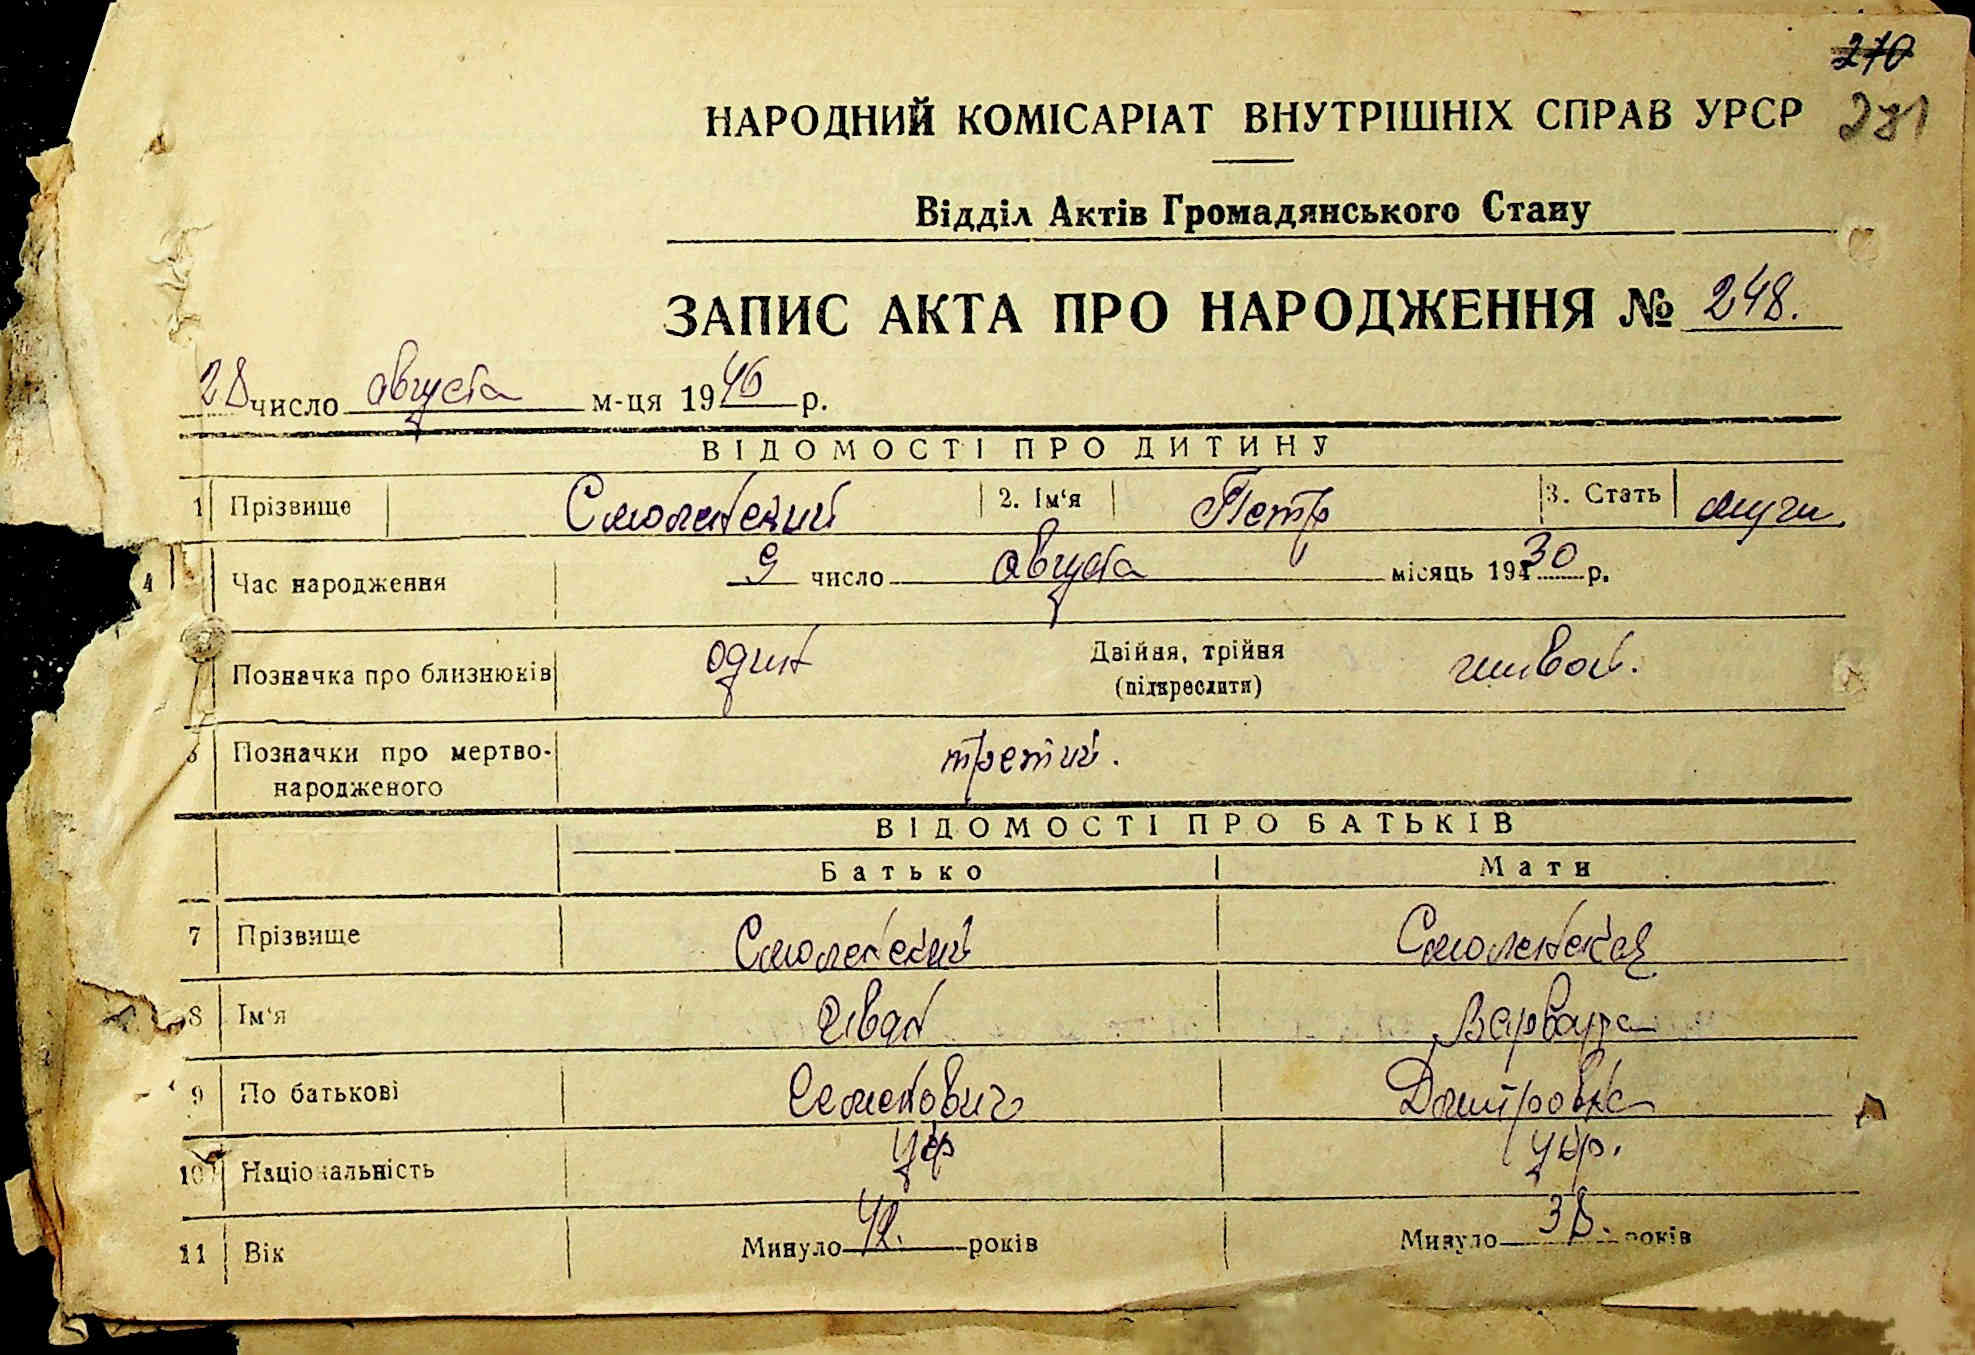 270
281
НАРОДНИЙ КОМІСАРІАТ ВНУТРІШНІХ СПРАВ УРСР
Відділ Актів Громадянського Стану
ЗАПИС АКТА ПРО НАРОДЖЕННЯ № 248.
28 число августа м-ця 1946 р.
ВІДОМОСТІ ПРО ДИТИНУ
1 Прізвище Смоленский 2. Ім'я Петр 3. Стать мужч.
4 Час народження 9 число августа місяць 19430 р.
Позначка про близнюків один Двійня, трійня (підкреслити) живой.
Позначки про мертво-народженого третий.
ВІДОМОСТІ ПРО БАТЬКІВ
Батько Мати
7 Прізвище Смоленский Смоленская
8 Ім'я Иван Варвара
9 По батькові Семенович Дмитровна
10 Національність укр укр.
11 Вік Минуло 42. років Минуло 38. років